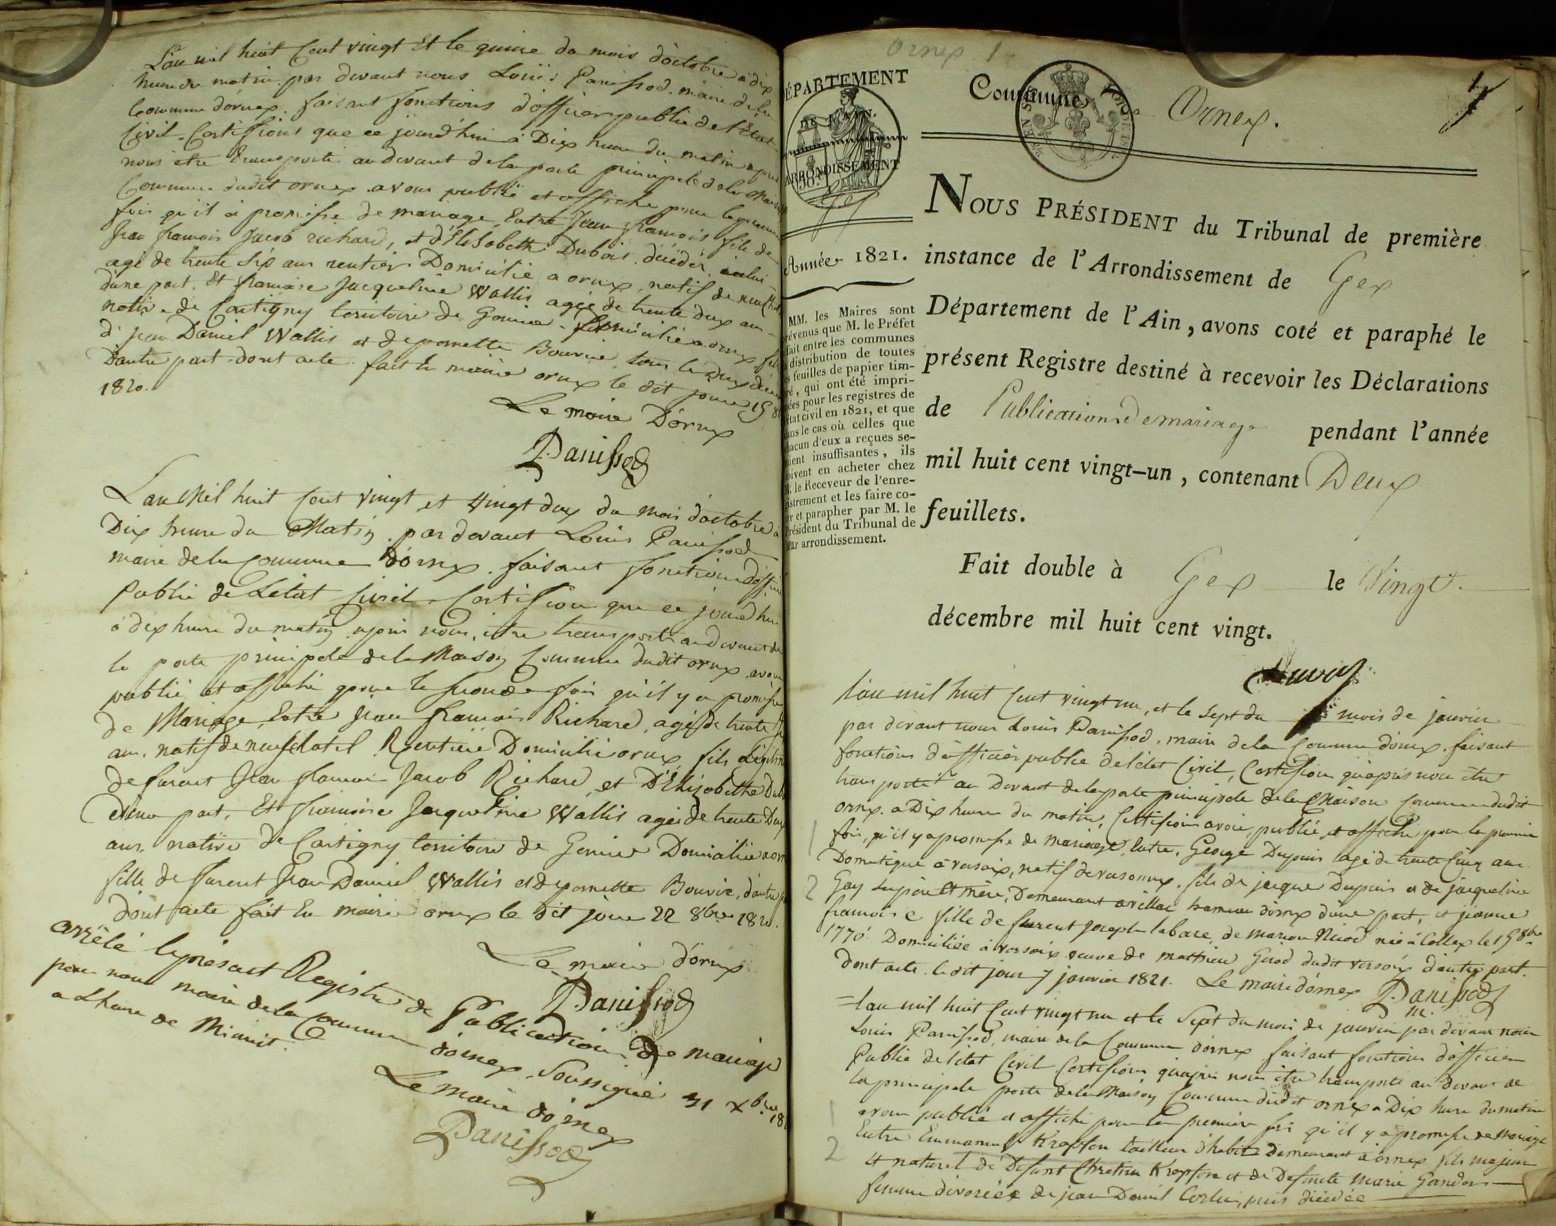 L'an mil huit Cent vingt Et le quinze du mois d'octobre à dix
heure du matin par devant nous Louis Panissod maire de la
Commune d'ornex faisant fonctions d'officier public de l'Etat
Civil Certiffions que ce jourd'hui à Dix heure du matin après
nous être transporté au devant de la porte principale de la Maison
Commune dudit ornex avons publié et affiché pour la première
fois qu'il a promesse de mariage, Entre Jean françois fils de
Jean françois Jacob richard, et d'Elisabeth Dubois décédés
agé de trente six ans rentier Domicilié a ornex natif de
d'une part Et françoise Jacqueline Wallis agée de trente deux ans
native de Cartigny territoire de Domiciliée a ornex
d' Jean Daniel Wallis et de pernette Bouvier tous les deux
D'autre part dont acte fait En mairie ornex le dit jour 15
1820.
Le maire D'ornex
Panissod
L'an Mil huit Cent vingt et vingt deux du mois d'octobre à
Dix heure du Matin par devant Louis Panissod
maire de la commune d'ornex faisant fonction d'officier
Public de L'état Civil Certiffion que ce jourd'hui
à dix heure du matin après nous être transporté au devant de
la porte principale de la Maison Commune dudit ornex avons
publié et affiché pour la seconde fois qu'il y a promesse
de Mariage Entre Jean françois Richard, agé de trente
ans natif de neufchatel Domicilié ornex fils
de furent Jean françois Jacob Richard et D'Elisabethe
d'une part, Et françoise Jacqueline Wallis agée de trente Deux
ans native de Cartigny territoire de Domiciliée a
fille de furent Jean Daniel Wallis et de pernette Bouvier, d'autre
Dont acte fait En mairie ornex le dit jour 22 8bre 1820.
Le maire d'ornex
Panissod
arrêté le présent Registre de Publication De mariage
par nous maire de la Commune d'ornex Soussigné 31 Xbre
a L'heure de Minuit.
Le maire d'ornex
Panissod
Ornex 1
DÉPARTEMENT
DE L'AIN.
ARRONDISSEMENT
Gex
Année 1821.
Commune Ornex.
MM. les Maires sont
prévenus que M. le Préfet
fait entre les communes
distribution de toutes
feuilles de papier tim-
bré, qui ont été impri-
mées pour les registres de
l'état civil en 1821, et que
dans le cas où celles que
chacun d'eux a reçues se-
roient insuffisantes, ils
doivent en acheter chez
M. le Receveur de l'enre-
gistrement et les faire co-
ter et parapher par M. le
Président du Tribunal de
arrondissement.
NOUS PRÉSIDENT du Tribunal de première
instance de l'Arrondissement de Gex
Département de l'Ain, avons coté et paraphé le
présent Registre destiné à recevoir les Déclarations
de Publications de mariage pendant l'année
mil huit cent vingt-un, contenant Deux
feuillets.
Fait double à Gex le Vingt
décembre mil huit cent vingt.
L'an mil huit Cent vingt un, et le Sept du mois de janvier
par devant nous Louis Panissod, maire de la Commune d'ornex faisant
fonctions d'officier public de l'état Civil, Certifions qu'après nous être
transporté au Devant de la porte principale de la Maison Commune dudit
ornex à Dix heure du matin, Certifions avoir publié, et affiché, pour la première
1
fois, qu'il y a promesse de mariage Entre, George Dupuis agé de trente Cinq ans
Domestique à versoix, natif de fils de jacque Dupuis et de jacqueline
2
Gay, Demeurant hameau d'ornex d'une part, et jeanne
françoise fille de furent joseph labace, de née à Collex le 15 8bre
1770 Domiciliée à versoix veuve de mathieu Girod dudit versoix d'autre part.
Dont acte le dit jour 7 janvier 1821. Le maire d'ornex Panissod
L'an mil huit Cent vingt un et le Sept du mois de janvier par devant nous
Louis Panissod, maire de la Commune d'ornex faisant fonctions d'officier
Public de l'état Civil Certifions qu'après nous être transporté au devant de
la principale porte de la Maison Commune dudit ornex à Dix heure du matin
1
avons publié et affiché pour la première fois qu'il y a promesse de Mariage
Entre Emmanuel tailleur d'habits demeurant à ornex fils majeur
2
et naturel de Défunt et de Defunte Marie
femme divorcée de jean Daniel puis décédée